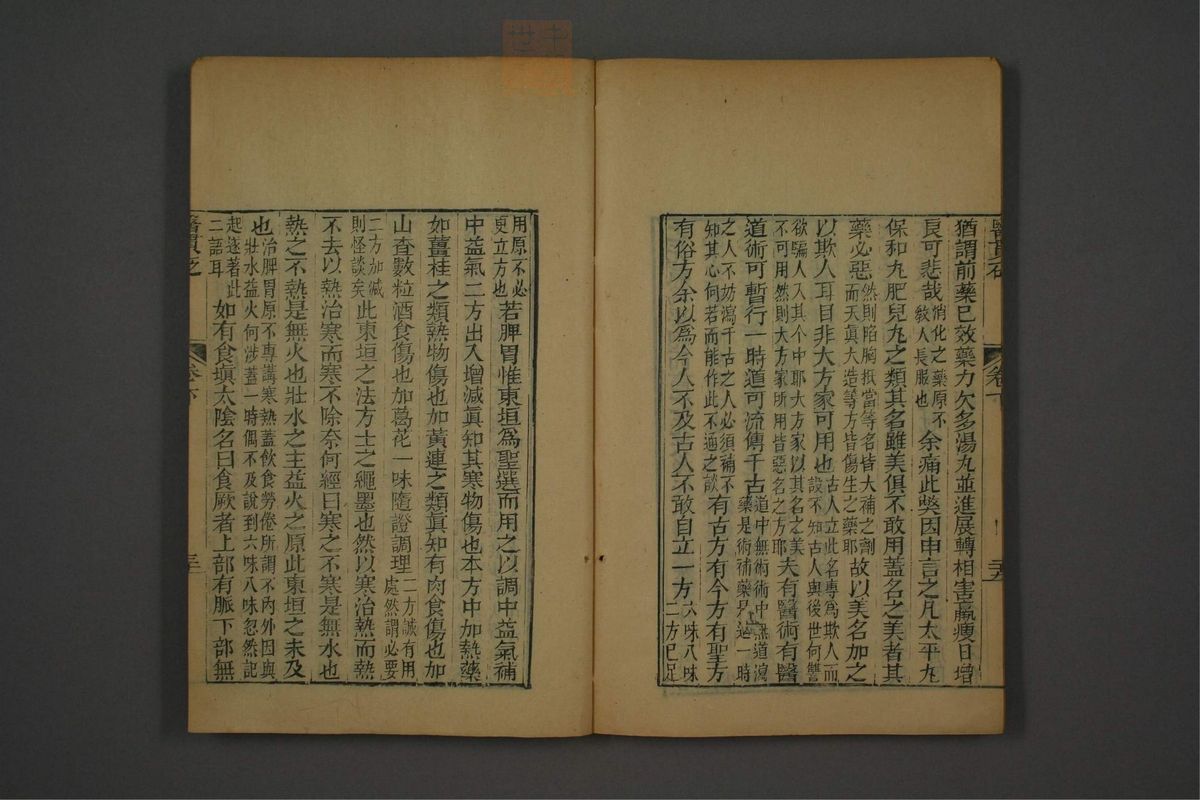 醫貫砭　卷下
猶謂前藥已效藥力欠多湯丸並進展轉相害羸瘦日增
良可悲哉消化之藥原不教人長服也余痛此弊因申言之凡太平丸
保和丸肥兒丸之類其名雖美俱不敢用蓋名之美者其
藥必惡然則陷胸抵當等名皆大補之劑而天眞大造等方皆傷生之藥耶故以美名加之
以欺人耳目非大方家可用也古人立此名專爲欺人而設不知古人與後世何讐
欲騙人入其个中耶大方家以其名之美不可用然則大方家所用皆惡名之方耶夫有醫術有醫
道術可暫行一時道可流傳千古道中無術術中無道瀉藥是術補藥是道一時
之人不妨瀉千古之人必須補不知其心何若而能作此不通之談有古方有今方有聖方
有俗方余以爲今人不及古人不敢自立一方六味八味二方已足
用原不必更立方也若脾胃惟東垣爲聖選而用之以調中益氣補
中益氣二方出入增減眞知其寒物傷也本方中加熱藥
如薑桂之類熱物傷也加黃連之類眞知有肉食傷也加
山査數粒酒食傷也加葛花一味隨證調理二方誠有用處然謂必要
二方加減則怪談矣此東垣之法方士之繩墨也然以寒治熱而熱
不去以熱治寒而寒不除奈何經曰寒之不寒是無水也
熱之不熱是無火也壯水之主益火之原此東垣之未及
也治脾胃原不專講寒熱蓋飲食勞倦所謂不內外因與壯水益火何涉蓋一時偶不及說到六味八味忽然記
起遂著此二語耳如有食塡太陰名曰食厥者上部有脈下部無
醫貫砭　卷下